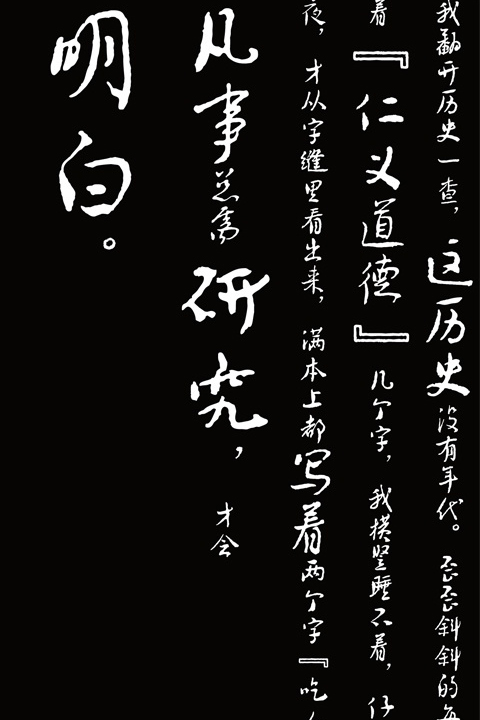 我翻开历史一查，这历史没有年代。歪歪斜斜的每
着『仁义道德』几个字，我横竖睡不着，仔
夜，才从字缝里看出来，满本上都写着两个字『吃
凡事总需研究，才会
明白。